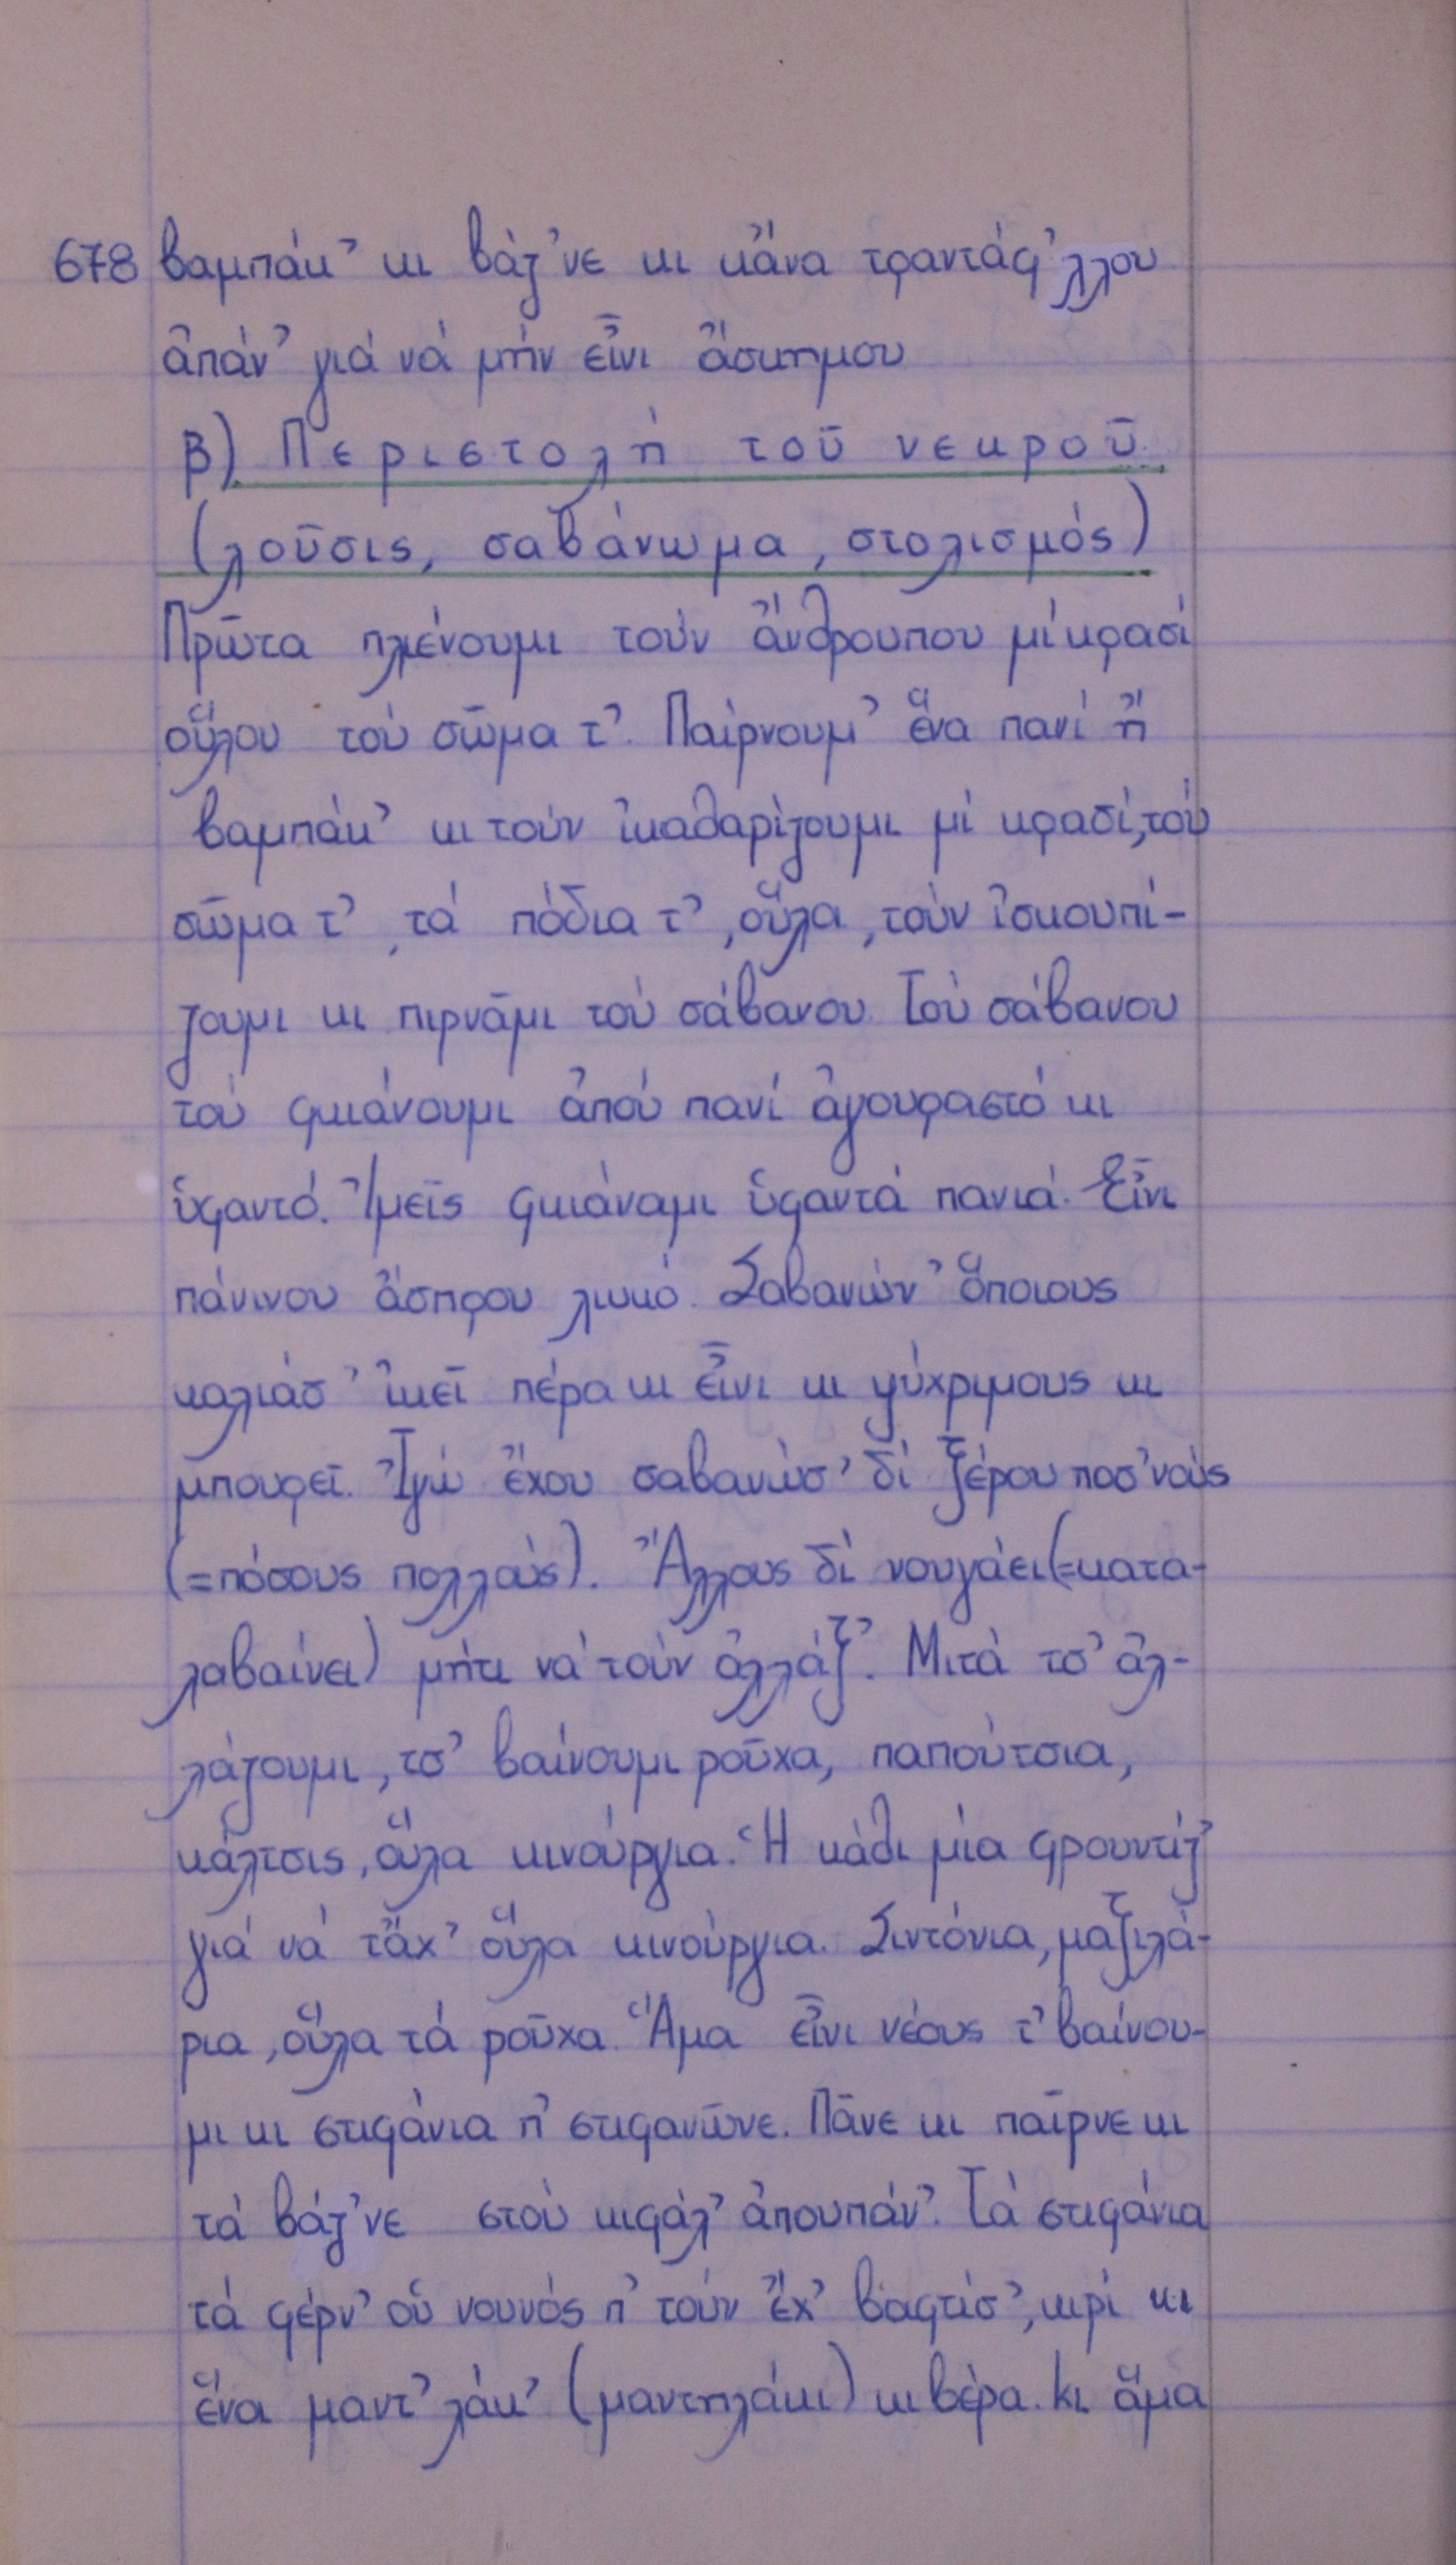 678 βαμπάκ’ κι βάζ’νε κι κἄνα τραντάφ’λλου
ἀπάν’ γιά νά μήν εἶνι ἄσκημου
β) Περιστολή τοῦ νεκροῦ
(λοῦσις, σαβάνωμα, στολισμός)
Πρῶτα πλένουμι τούν ἄνθρουπου μί κρασί
οὕλου τού σῶμα τ’. Παίρνουμ’ ἕνα πανί ἤ
βαμπάκ’ κι τούν ἰκαθαρίζουμι μί κρασί, τού
σῶμα τ’, τά πόδια τ’, οὕλα, τούν ἰσκουπί-
ζουμι κι πιρνᾶμι τού σάβανου. Τού σάβανου
τού φκιάνουμι ἀπού πανί ἀγουραστό κι
ὑφαντό. Ἰμεῖς φκιάναμι ὑφαντά πανιά. Εἶνι
πάνινου ἄσπρου λιυκό. Σαβανών’ ὅποιους
καλιάσ’ ἰκεῖ πέρα κι εἶνι κι ψύχριμους κι
μπουρεῖ. Ἰγώ ἔχου σαβανώσ’ δί ξέρου ποσ’νούς
(=πόσους πολλούς). Ἄλλους δί νουγάει (=κατα-
λαβαίνει) μήτι νά τούν ἀλλάξ’. Μιτά τσ’ ἀλ-
λάζουμι, τσ’ βαίνουμι ροῦχα, παπούτσια,
κάλτσις, οὕλα κινούργια. Ἡ κάθι μία φρουντίζ’
γιά νά τἄχ’ οὕλα κινούργια. Σιντόνια, μαξιλά-
ρια, οὕλα τά ροῦχα. Ἅμα εἶνι νέους τ’ βαίνου-
μι κι στιφάνια π’ στιφανῶνε. Πᾶνε κι παῖρνε κι
τά βάζ’νε στού κιφάλ’ ἀπουπάν’. Τά στιφάνια
τά φέρν’ οὑ νουνός π’ τούν ἔχ’ βαφτίσ’, κιρί κι
ἕνα μαντ’λάκ’ (μαντηλάκι) κι βέρα. Κι ἅμα